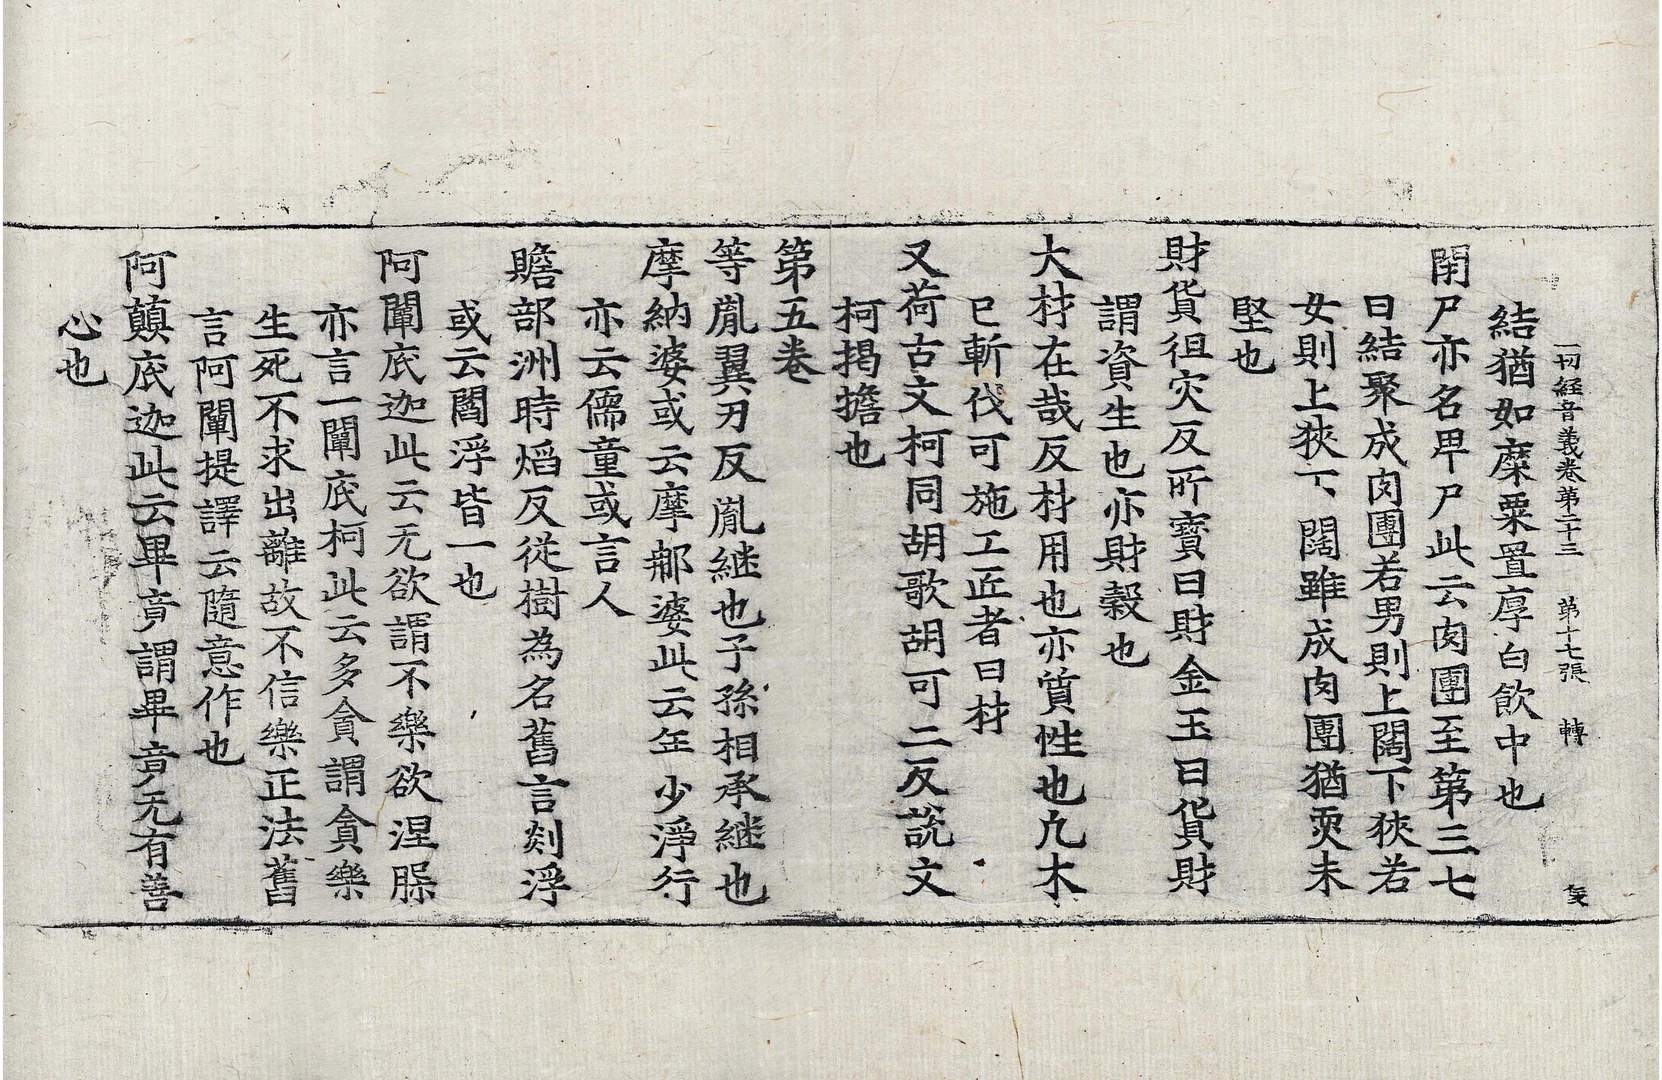 一切經音義卷第二十三 第十七張 轉
結猶如糜粟置厚白飲中也
閇尸亦名畢尸此云肉團至第三七
日結聚成肉團若男則上闊下狹若
女則上狹下闊雖成肉團猶耎未
堅也
財貨徂灾反所寶曰財金玉曰貨財
謂資生也亦財穀也
大材在哉反材用也亦質性也凢木
已斬伐可施工匠者曰材
又荷古文柯同胡歌胡可二反說文
柯揭擔也
第五卷
等胤翼刃反胤継也子孫相承継也
摩納婆或云摩那婆此云年少淨行
亦云儒童或言人
贍部洲時焰反從樹為名舊言剡浮
或云閻浮皆一也
阿闡底迦此云无欲謂不樂欲涅槃
亦言一闡底柯此云多貪謂貪樂
生死不求出離故不信樂正法舊
言阿闡提譯云隨意作也
阿顛底迦此云畢竟謂畢竟无有善
心也